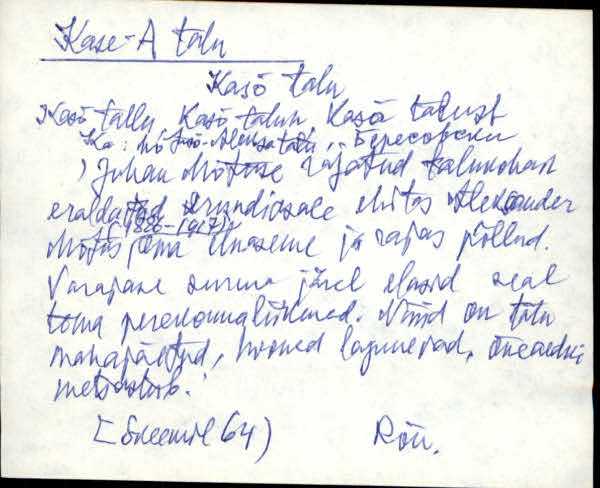 Kase-A talu
Kasõ talu
Kasõ tallu, Kasõ talun, Kasõ talust
Ka: Mõtuso-Aleksa talu, .. Бересовски
) Juhan Mõtuse rajatud talukohast
eraldatud krundiosale ehitas Aleksander
(1886-1917)
Mõtus oma eluaseme ja rajas põllud.
Varajase surma järel elasid seal
tema perekonnaliikmed. Nüüd on talu
mahajäetud, hooned lagunevad, õueaedki
metsastub.
[Skeemil 64) Rõu.